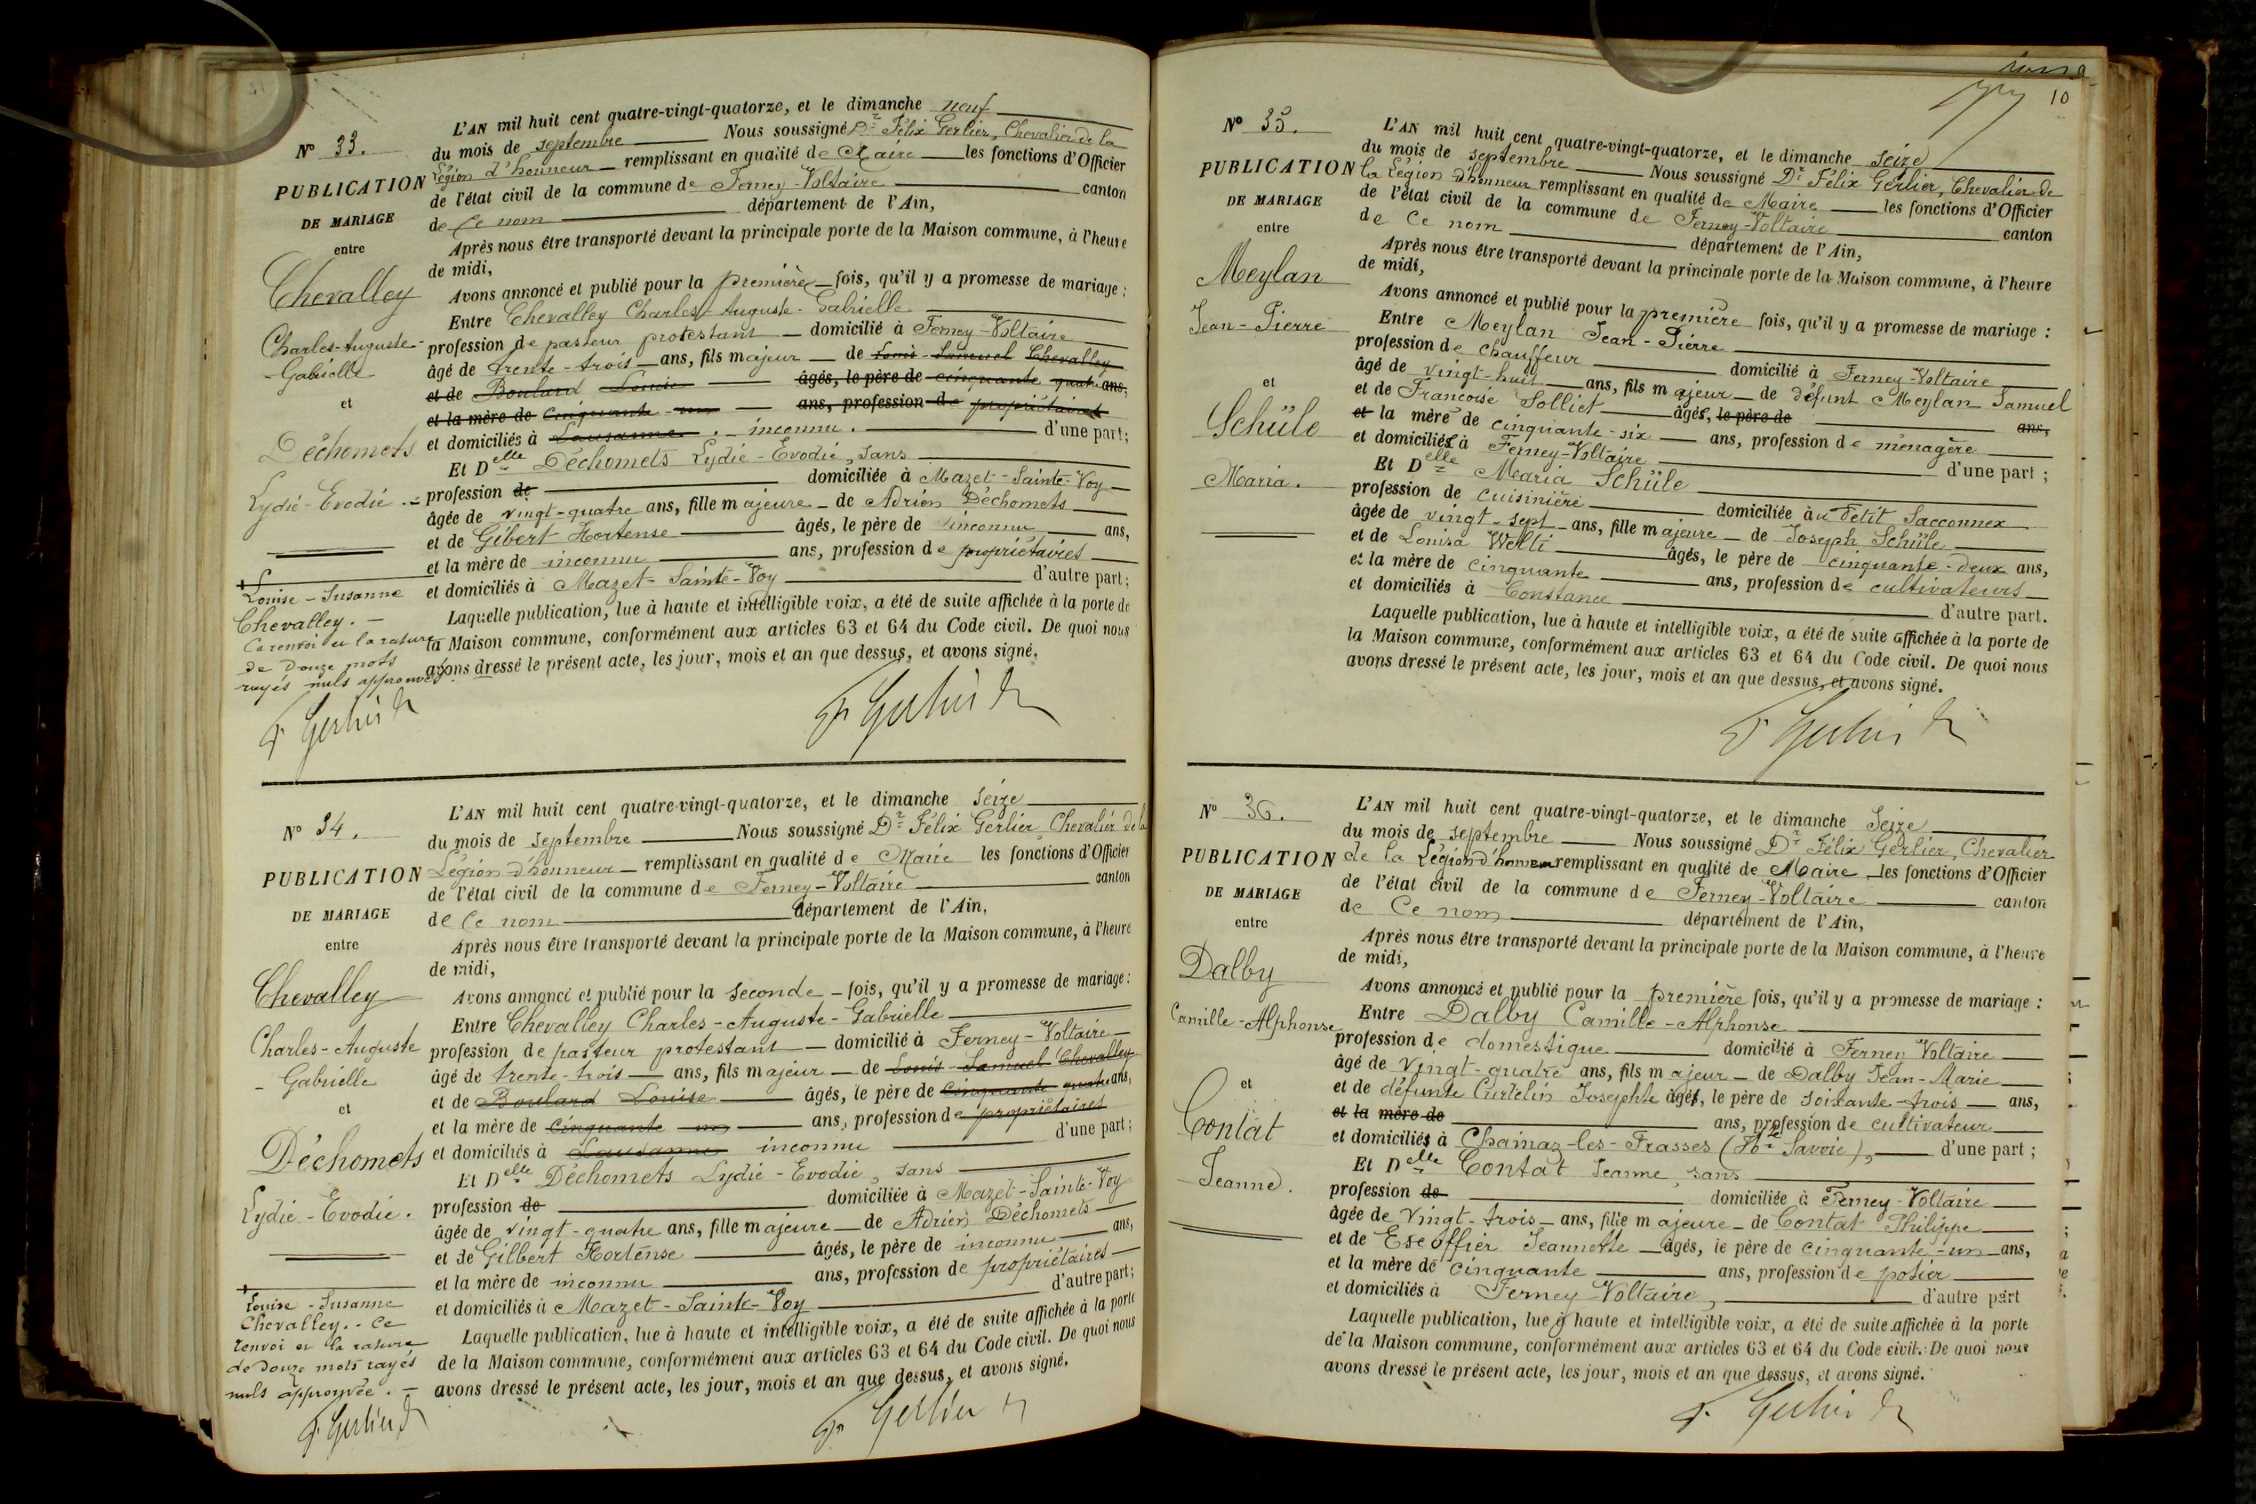 N° 33.
PUBLICATION
DE MARIAGE
entre
Chevalley
Charles-Auguste-
-Gabrielle
et
Déchomets
Lydie-Evodie.
Louise-Susanne
Chevalley. —
Ce renvoi et la rature
de douze mots
rayés nuls approuvés.
F. Gerlier Dr
L'AN mil huit cent quatre-vingt-quatorze, et le dimanche neuf
du mois de septembre Nous soussigné Dr Félix Gerlier, Chevalier de la
Légion d'honneur remplissant en qualité de Maire les fonctions d'Officier
de l'état civil de la commune de Ferney-Voltaire canton
de Ce nom département de l'Ain,
Après nous être transporté devant la principale porte de la Maison commune, à l'heure
de midi,
Avons annoncé et publié pour la première fois, qu'il y a promesse de mariage :
Entre Chevalley Charles-Auguste-Gabrielle
profession de pasteur protestant domicilié à Ferney-Voltaire
âgé de trente-trois ans, fils majeur de Louis-Samuel Chevalley
et de Boulard Louise âgés, le père de cinquante quatre ans,
et la mère de cinquante un ans, profession de propriétaires
et domiciliés à Lausanne. inconnu. d'une part;
Et Delle Déchomets Lydie-Evodie, sans
profession de domiciliée à Mazet-Sainte-Voy
âgée de vingt-quatre ans, fille majeure de Adrien Déchomets
et de Gibert Hortense âgés, le père de inconnu ans,
et la mère de inconnu ans, profession de propriétaires
et domiciliés à Mazet-Sainte-Voy d'autre part;
Laquelle publication, lue à haute et intelligible voix, a été de suite affichée à la porte de
la Maison commune, conformément aux articles 63 et 64 du Code civil. De quoi nous
avons dressé le présent acte, les jour, mois et an que dessus, et avons signé.
F. Gerlier Dr
N° 34.
PUBLICATION
DE MARIAGE
entre
Chevalley
Charles-Auguste
-Gabrielle
et
Déchomets
Lydie-Evodie.
Louise-Susanne
Chevalley.- Ce
renvoi et la rature
de douze mots rayés
nuls approuvée. —
F. Gerlier Dr
L'AN mil huit cent quatre-vingt-quatorze, et le dimanche seize
du mois de septembre Nous soussigné Dr Félix Gerlier Chevalier de la
Légion d'honneur remplissant en qualité de Maire les fonctions d'Officier
de l'état civil de la commune de Ferney-Voltaire canton
de Ce nom département de l'Ain,
Après nous être transporté devant la principale porte de la Maison commune, à l'heure
de midi,
Avons annoncé et publié pour la seconde fois, qu'il y a promesse de mariage :
Entre Chevalley Charles-Auguste-Gabrielle
profession de pasteur protestant domicilié à Ferney-Voltaire
âgé de trente-trois ans, fils majeur de Louis-Samuel Chevalley
et de Boulard Louise âgés, le père de cinquante quatre ans,
et la mère de cinquante un ans, profession de propriétaires
et domiciliés à Lausanne inconnu d'une part;
Et Delle Déchomets Lydie-Evodie, sans
profession de domiciliée à Mazet-Sainte-Voy
âgée de vingt-quatre ans, fille majeure de Adrien Déchomets
et de Gilbert Hortense âgés, le père de inconnu ans,
et la mère de inconnu ans, profession de propriétaires
et domiciliés à Mazet-Sainte-Voy d'autre part;
Laquelle publication, lue à haute et intelligible voix, a été de suite affichée à la porte
de la Maison commune, conformément aux articles 63 et 64 du Code civil. De quoi nous
avons dressé le présent acte, les jour, mois et an que dessus, et avons signé.
F. Gerlier Dr
10
N° 35.
PUBLICATION
DE MARIAGE
entre
Meylan
Jean-Pierre
et
Schüle
Maria.
L'AN mil huit cent quatre-vingt-quatorze, et le dimanche seize
du mois de septembre Nous soussigné Dr Félix Gerlier, Chevalier de
la Légion d'honneur remplissant en qualité de Maire les fonctions d'Officier
de l'état civil de la commune de Ferney-Voltaire canton
de Ce nom département de l'Ain,
Après nous être transporté devant la principale porte de la Maison commune, à l'heure
de midi,
Avons annoncé et publié pour la première fois, qu'il y a promesse de mariage :
Entre Meylan Jean-Pierre
profession de chauffeur domicilié à Ferney-Voltaire
âgé de vingt-huit ans, fils majeur de défunt Meylan Samuel
et de Françoise Solliet âgés, le père de ans,
et la mère de cinquante-six ans, profession de ménagère
et domiciliés à Ferney-Voltaire d'une part ;
Et Delle Maria Schüle
profession de cuisinière domiciliée au Petit Sacconnex
âgée de vingt-sept ans, fille majeure de Joseph Schüle
et de Louisa Welti âgés, le père de cinquante-deux ans,
et la mère de cinquante ans, profession de cultivateurs
et domiciliés à Constance d'autre part.
Laquelle publication, lue à haute et intelligible voix, a été de suite affichée à la porte de
la Maison commune, conformément aux articles 63 et 64 du Code civil. De quoi nous
avons dressé le présent acte, les jour, mois et an que dessus, et avons signé.
F. Gerlier Dr
N° 36.
PUBLICATION
DE MARIAGE
entre
Dalby
Camille-Alphonse
et
Contat
Jeanne.
L'AN mil huit cent quatre-vingt-quatorze, et le dimanche Seize
du mois de septembre Nous soussigné Dr Félix Gerlier, Chevalier
de la Légion d'honneur remplissant en qualité de Maire les fonctions d'Officier
de l'état civil de la commune de Ferney-Voltaire canton
de Ce nom département de l'Ain,
Après nous être transporté devant la principale porte de la Maison commune, à l'heure
de midi,
Avons annoncé et publié pour la première fois, qu'il y a promesse de mariage :
Entre Dalby Camille-Alphonse
profession de domestique domicilié à Ferney Voltaire
âgé de Vingt-quatre ans, fils majeur de Dalby Jean-Marie
et de défunte Curtelin Josephte âgés, le père de soixante-trois ans,
et la mère de ans, profession de cultivateur
et domiciliés à Chainaz-les-Frasses (Hte Savoie), d'une part ;
Et Delle Contat Jeanne, sans
profession de domiciliée à Ferney-Voltaire
âgée de Vingt-trois ans, fille majeure de Contat Philippe
et de Escoffier Jeannette âgés, le père de cinquante-un ans,
et la mère de cinquante ans, profession de potier
et domiciliés à Ferney-Voltaire, d'autre part
Laquelle publication, lue à haute et intelligible voix, a été de suite affichée à la porte
de la Maison commune, conformément aux articles 63 et 64 du Code civil. De quoi nous
avons dressé le présent acte, les jour, mois et an que dessus, et avons signé.
F. Gerlier Dr